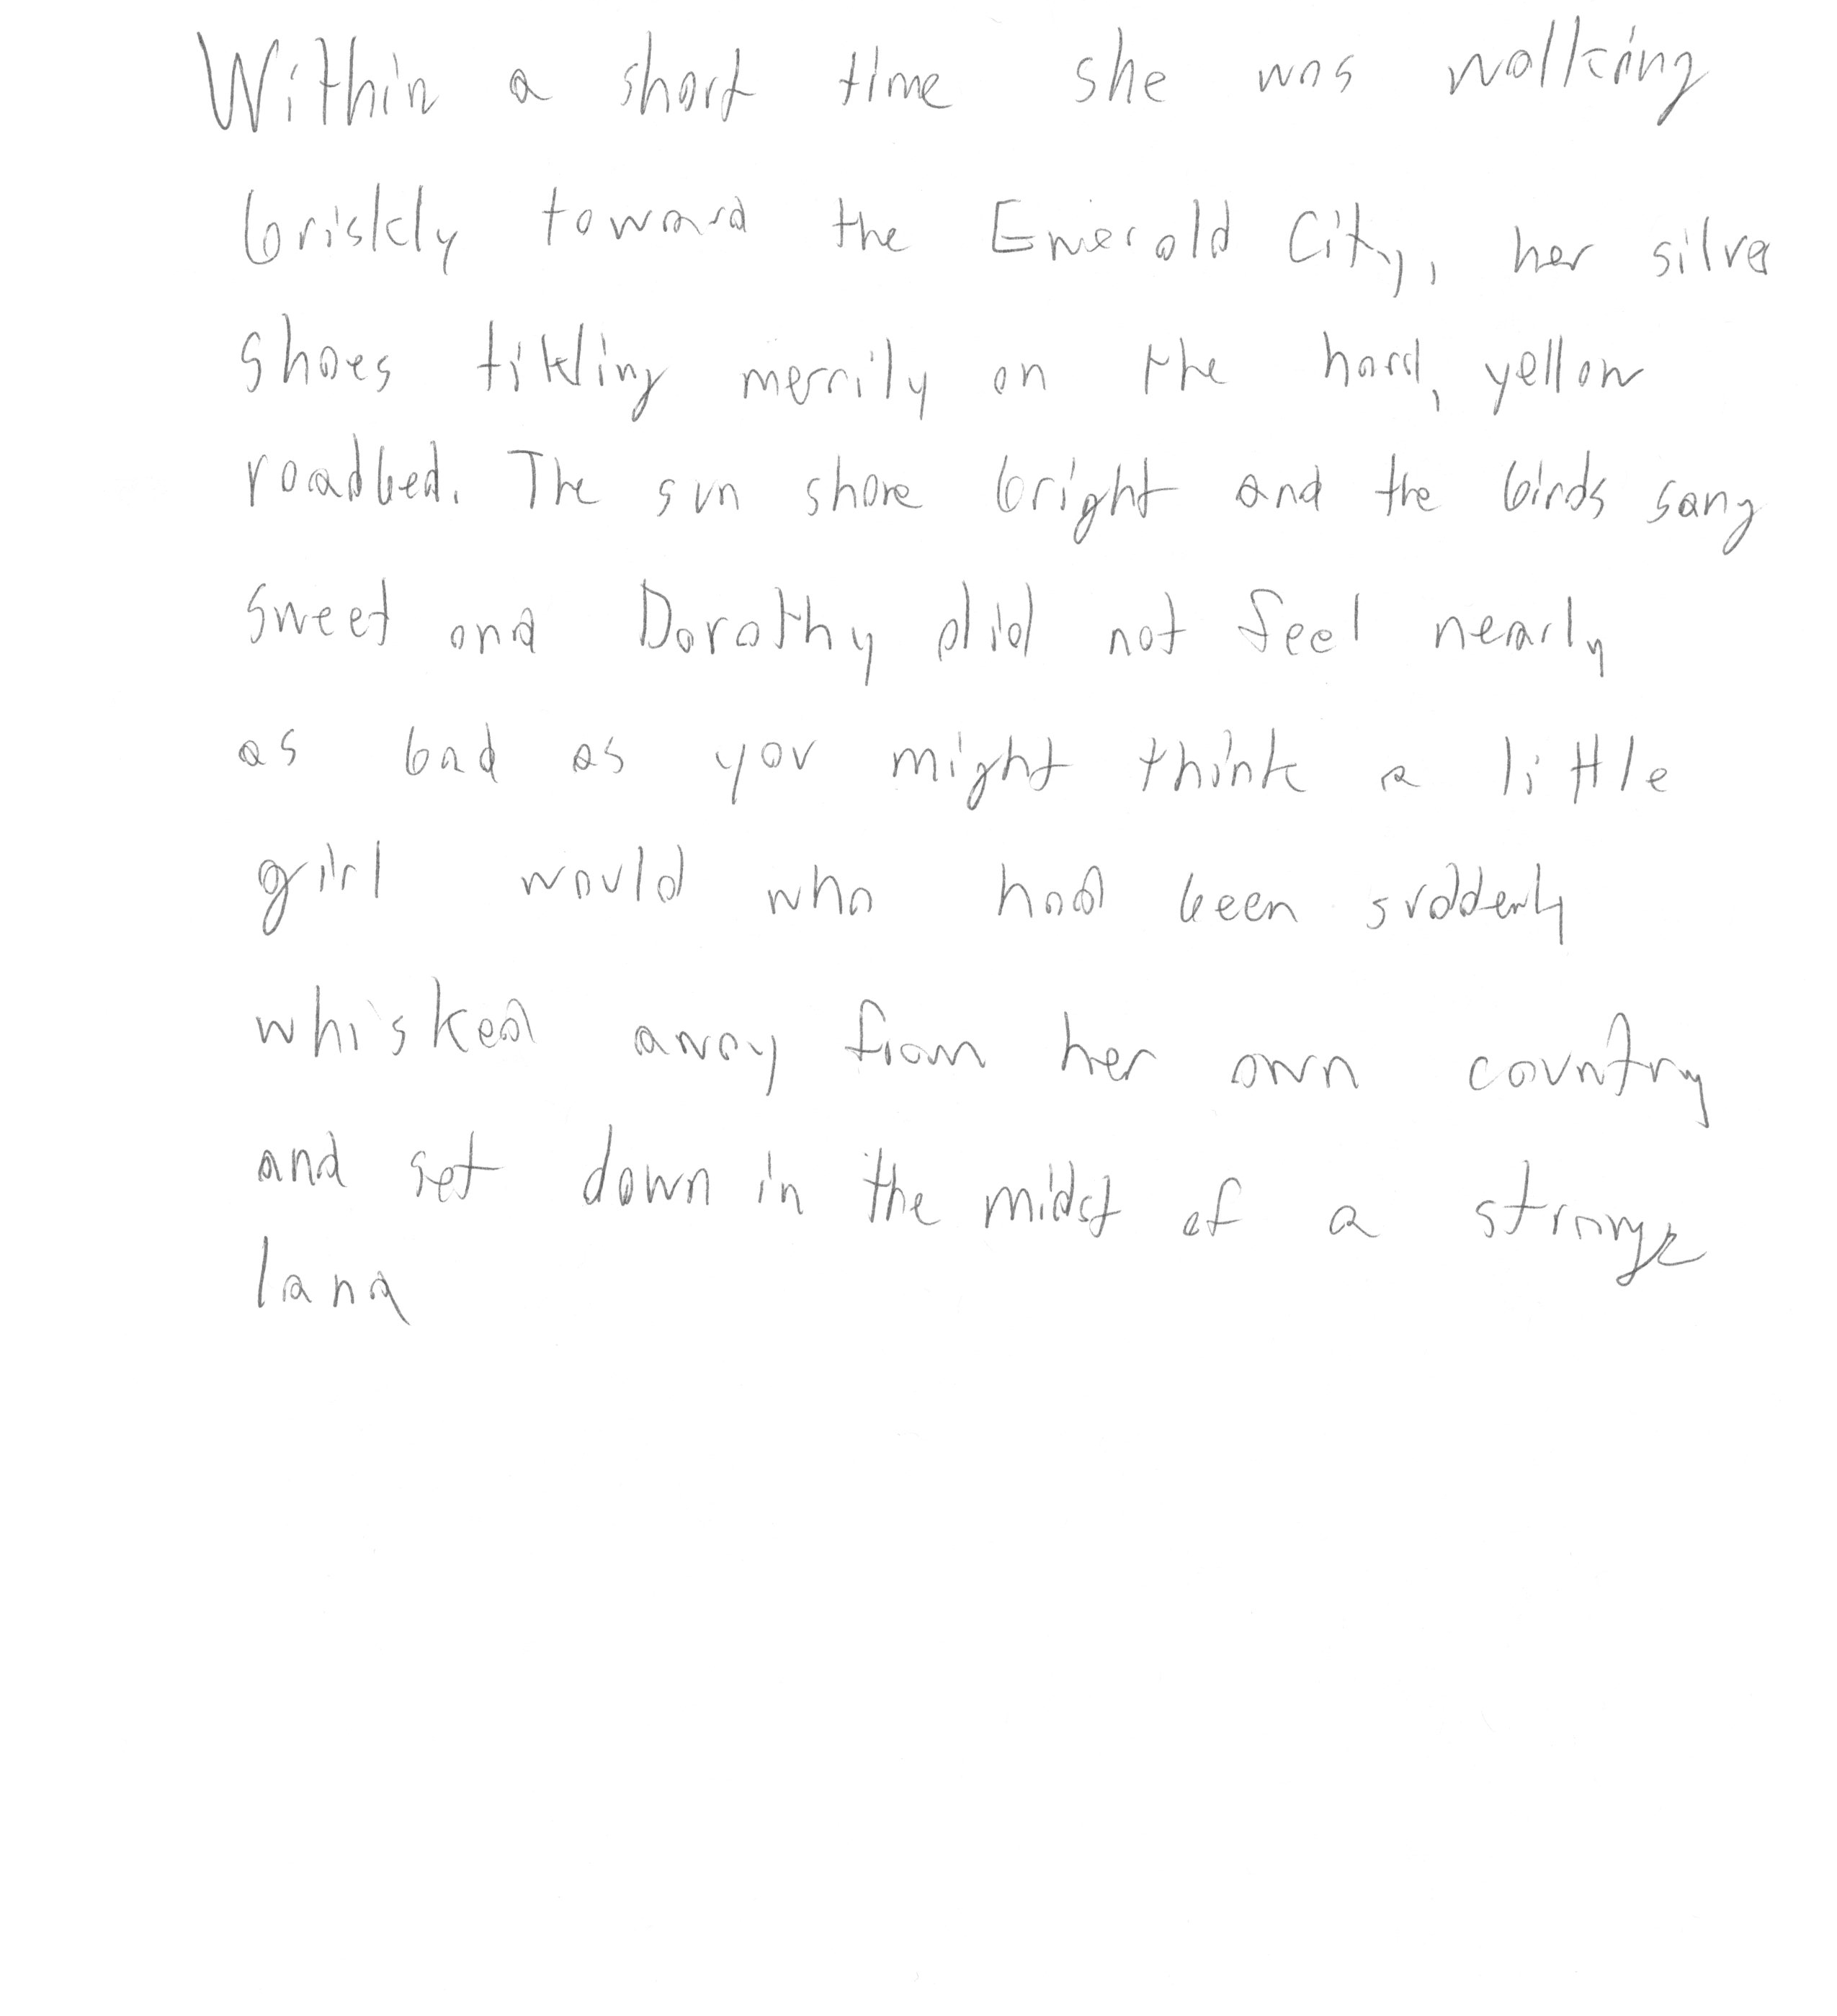 Within a short time she was walking
briskly toward the Emerald City, her silver
shoes tikling merrily on the hard, yellow
roadbed. The sun shone bright and the birds sang
sweet and Dorothy did not feel nearly
as bad as you might think a little
girl would who had been suddenly
whisked away from her own country
and set down in the midst of a strange
land